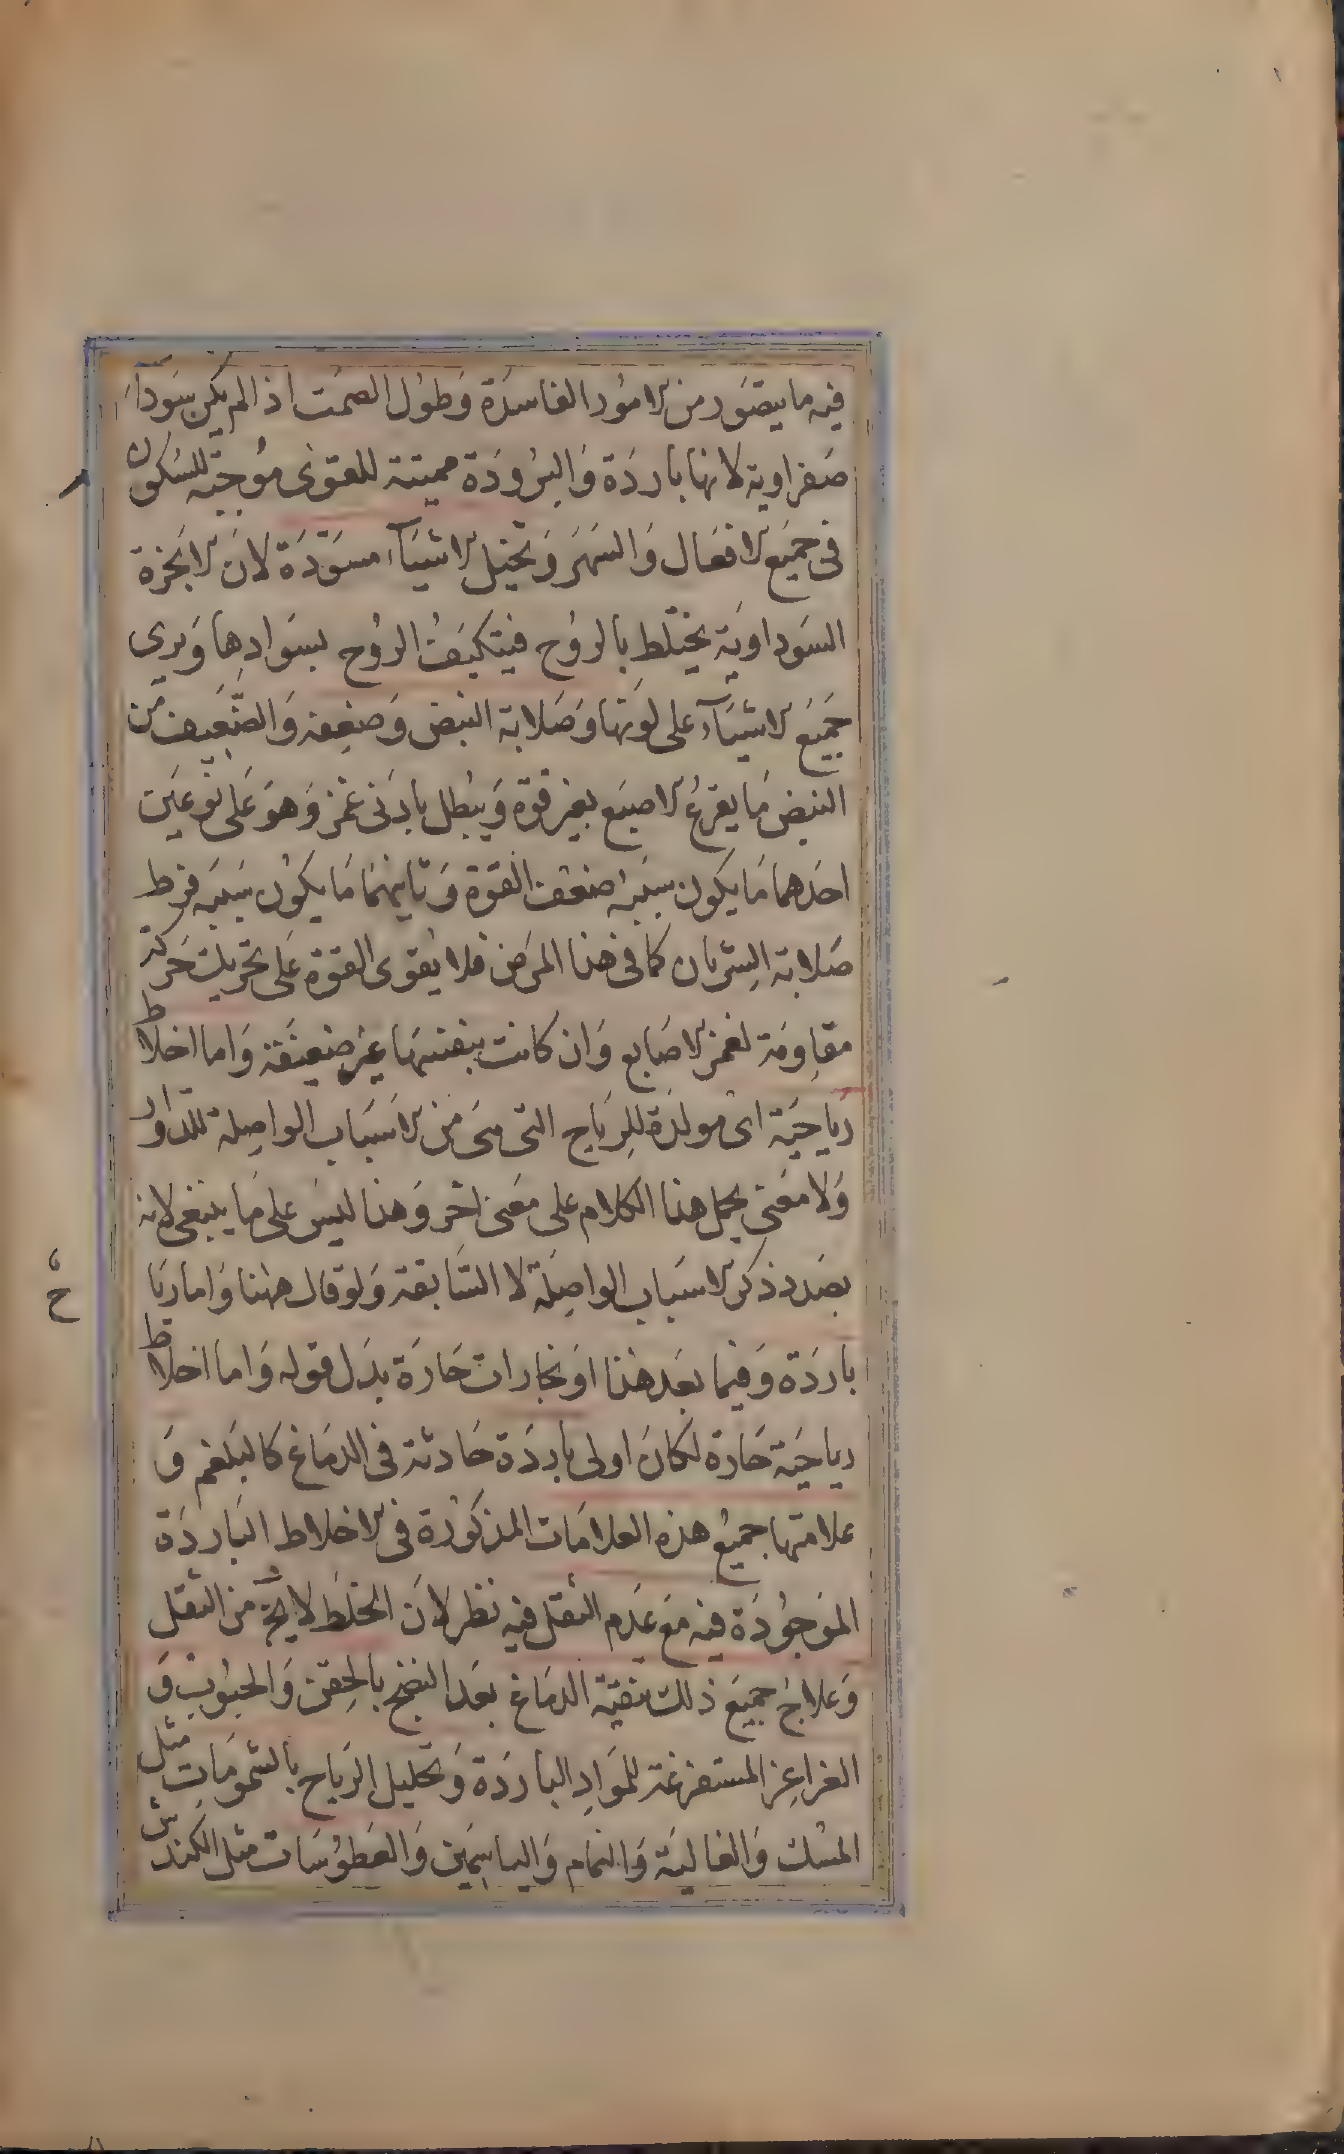 فيه ما يتصور من الامور الفاسدة وَطوُل الصمت اذا لم يكن سَوداَء
صَفراوية لانها باردَة وَالبرُودَة مميتة للقوى موُجبَة للسكون
فى جميَع الافعَال وَالسَهَر وَتخيل الاشيَآء مسوَدَّة لانَ الابخرة
السَوداويَة يختلط بالروُح فيتكيَفُ الروُح بسَوادِها وَيرى
جَميَع الاشيَآء على لونها وَصَلابة النبض وَضعفه وَالضَّعَيف من
النبض مَا يقرعُ الاصبَع بغير قوة وَيبطل بادَنى غمز وَهوَ عَلى نوعَين
احَدهما مَا يَكون سببُه ضعف القوة وَثانيهمَا مَا يكوُن سَببَه فرط
صَلابة الشريان كما فى هذا المرَض فلا يقوى القوة عَلى تحريك حَركة
مقاومَة لغمز الاصَابع وَان كانت بنفسهَا غير ضعيفَة وَاما اخلاط
رياحيَة اى موَلدَة للِريَاح التى هىَ مَن الاسَبَاب الواصِلة للدوار
وَلَا مَعنى بحمل هذا الكلام على مَعنى اخَر وَهذا ليسَ على مَا ينبغى لانه
بصَدد ذكر الاسَباب الواصِلَة لا السَّابقة وَلو قال ههُنا وَاما ريَاح
باردَة وَفيما بعَد هذا اوَ بخارات حَارَة بدَل قوله وَاما اخلاط
رياحيَة حَارة لكانَ اولى باردَة حَادثة فى الدمَاغ كالبَلغم وَ
علامتها جميعُ هذه العلامَات المذكوُرة فى الاخلاط البَاردَة
الموَجوُدَة فيه مَع عَدَم الثقل فيه نظر لانَ الخلَط لا يخ من الثقل
وَعلاجُ جميَع ذلك تنقية الدمَاغ بعَد النضج بالحِقن وَالحبوُب وَ
الغراغِر المستفرغة للموَادِ الباردَة وَتحليل الريَاح بالشموُمَات مثل
المسُك وَالغاليَة وَالنمَام وَالياسِمَين وَالعَطوُسَات مثل الكندش
ح